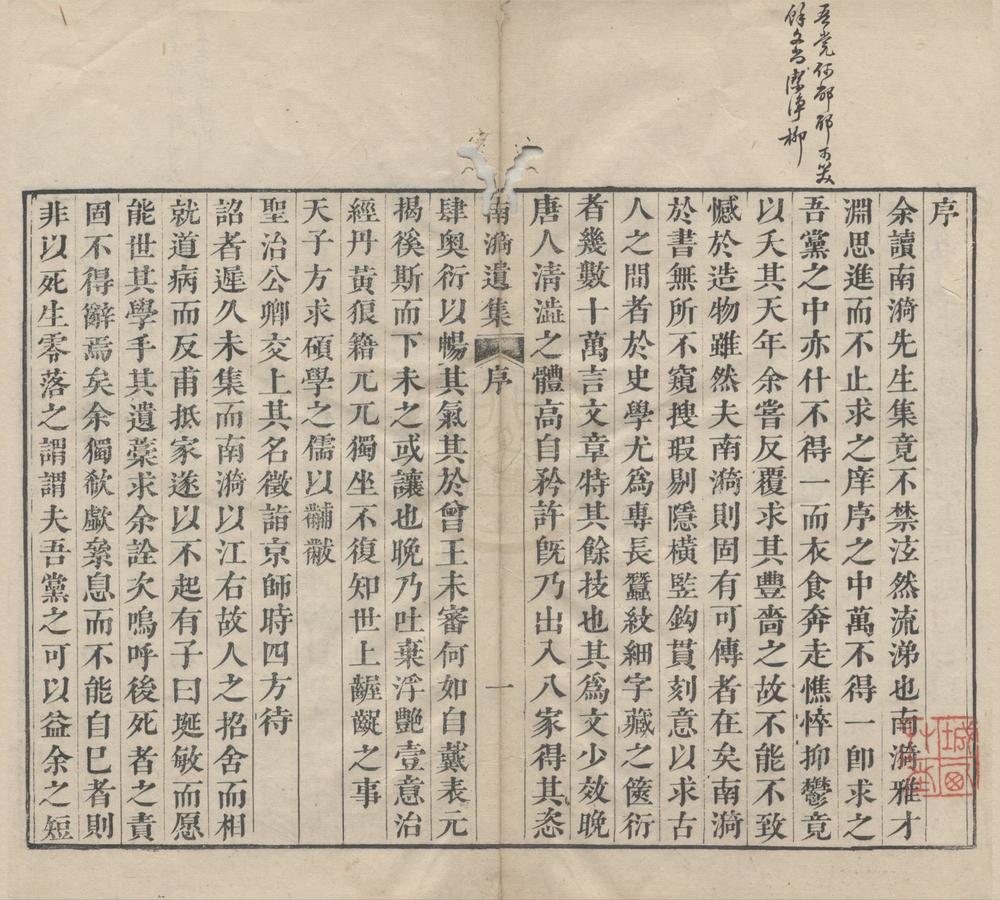 吾党何郁郁可哭
序
余讀南漪先生集竟不禁泫然流涕也南漪雅才
淵思進而不止求之庠序之中萬不得一卽求之
吾黨之中亦什不得一而衣食奔走憔悴抑鬱竟
以夭其天年余嘗反覆求其豐嗇之故不能不致
憾於造物雖然夫南漪則固有可傳者在矣南漪
於書無所不窺搜瑕剔隱橫竪鈎貫刻意以求古
人之間者於史學尤爲專長蠶紋細字藏之篋衍
者幾數十萬言文章特其餘技也其爲文少效晚
唐人淸澁之體高自矜許旣乃出入八家得其恣
南漪遺集
序
一
肆奥衍以暢其氣其於曾王未審何如自戴表元
揭徯斯而下未之或讓也晚乃吐棄浮艷壹意治
經丹黃狼籍兀兀獨坐不復知世上齷齪之事
天子方求碩學之儒以黼黻
聖治公卿交上其名徵詣京師時四方待
詔者遲久未集而南漪以江右故人之招舍而相
就道病而反甫抵家遂以不起有子曰埏敏而愿
能世其學手其遺藁求余詮次嗚呼後死者之責
固不得辭焉矣余獨欷歔絫息而不能自巳者則
非以死生零落之謂謂夫吾黨之可以益余之短